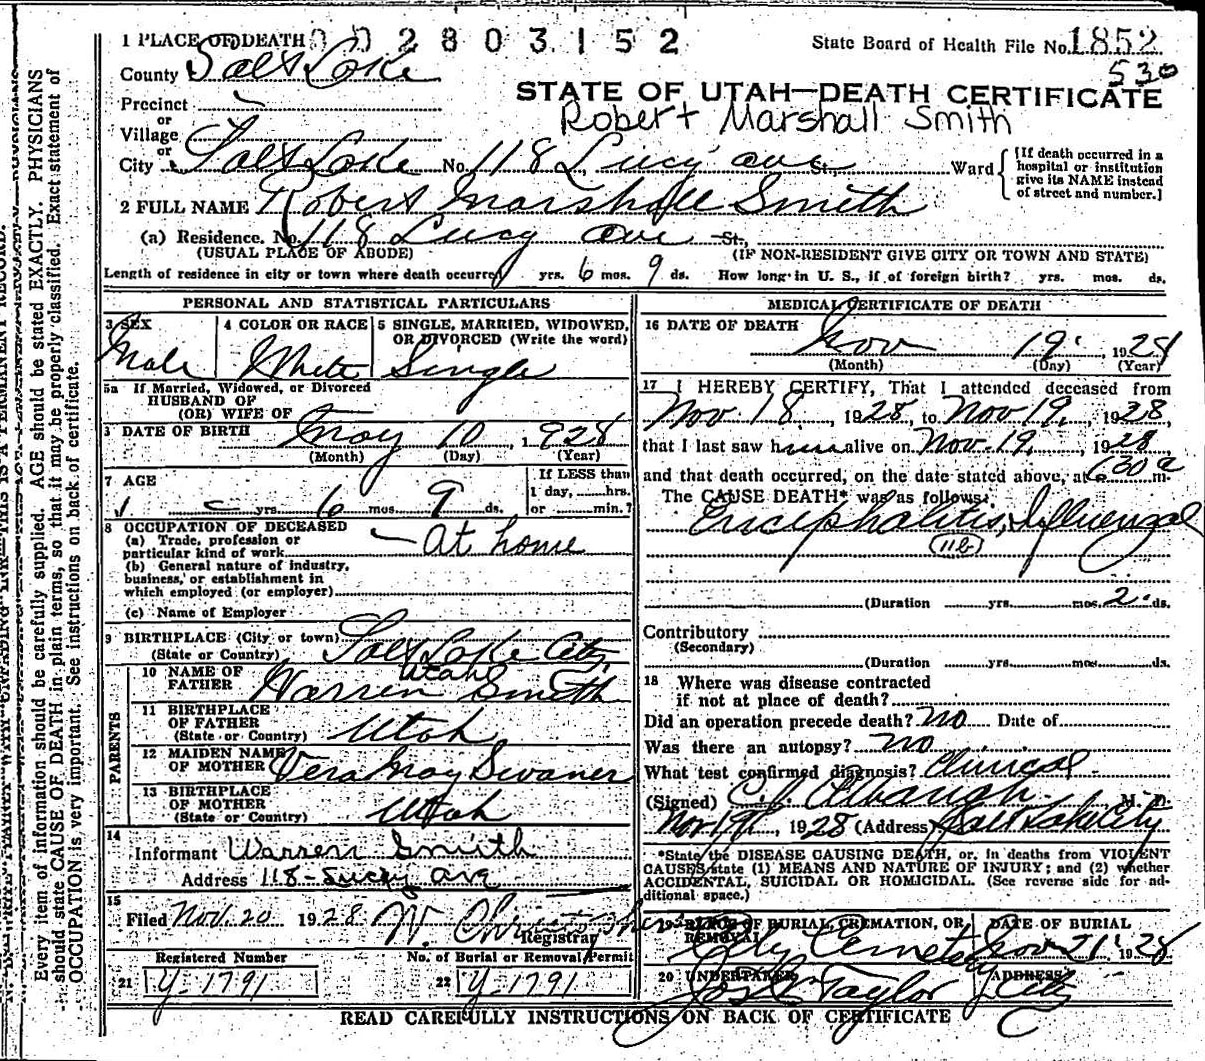 1 PLACE OF DEATH 002803152
State Board of Health File No. 1852
County Salt Lake
530
STATE OF UTAH—DEATH CERTIFICATE
Precinct
or
Robert Marshall Smith
Village
or
City Salt Lake No. 118 Lucy ave St., Ward
[If death occurred in a
hospital or institution
give its NAME instead
of street and number.]
2 FULL NAME Robert Marshall Smith
(a) Residence. No. 118 Lucy ave St.,
(USUAL PLACE OF ABODE) (IF NON-RESIDENT GIVE CITY OR TOWN AND STATE)
Length of residence in city or town where death occurred yrs. 6 mos. 9 ds. How long in U. S., if of foreign birth? yrs. mos. ds.
PERSONAL AND STATISTICAL PARTICULARS
3 SEX 4 COLOR OR RACE 5 SINGLE, MARRIED, WIDOWED,
OR DIVORCED (Write the word)
Male White Single
5a If Married, Widowed, or Divorced
HUSBAND OF
(OR) WIFE OF
DATE OF BIRTH May 10, 1928
(Month) (Day) (Year)
7 AGE
If LESS than
1 day, hrs.
yrs. 6 mos. 9 ds. or min.?
8 OCCUPATION OF DECEASED
(a) Trade, profession or
particular kind of work at home
(b) General nature of industry,
business, or establishment in
which employed (or employer)
(c) Name of Employer
9 BIRTHPLACE (City or town) Salt Lake City,
(State or Country) Utah
PARENTS
10 NAME OF
FATHER Warren Smith
11 BIRTHPLACE
OF FATHER
(State or Country) Utah
12 MAIDEN NAME
OF MOTHER Vera May Swaner
13 BIRTHPLACE
OF MOTHER
(State or Country) Utah
14
Informant Warren Smith
Address 118 - Lucy ave
15
Filed Nov. 20 1928 W. Christopherson
Registrar
Registered Number No. of Burial or Removal Permit
21 Y-1791 22 Y-1791
MEDICAL CERTIFICATE OF DEATH
16 DATE OF DEATH Nov 19, 1928
(Month) (Day) (Year)
17 I HEREBY CERTIFY, That I attended deceased from
Nov 18, 1928, to Nov 19, 1928,
that I last saw him alive on Nov. 19, 1928
and that death occurred, on the date stated above, at 630 a m.
The CAUSE DEATH* was as follows:
Encephalitis, Influenzal
11b
(Duration yrs. mos. 2 ds.
Contributory
(Secondary)
(Duration yrs. mos. ds.
18 Where was disease contracted
if not at place of death?
Did an operation precede death? no Date of
Was there an autopsy? no
What test confirmed diagnosis? Clinical
(Signed) C. J. Albaugh M. D.
Nov 19, 1928 (Address) Salt Lake City
*State the DISEASE CAUSING DEATH, or, in deaths from VIOLENT
CAUSES, state (1) MEANS AND NATURE OF INJURY; and (2) whether
ACCIDENTAL, SUICIDAL OR HOMICIDAL. (See reverse side for ad-
ditional space.)
19 PLACE OF BURIAL, CREMATION, OR DATE OF BURIAL
REMOVAL City Cemetery Nov 21, 1928
20 UNDERTAKER Jos Taylor ADDRESS City
READ CAREFULLY INSTRUCTIONS ON BACK OF CERTIFICATE
Every item of information should be carefully supplied. AGE should be stated EXACTLY. PHYSICIANS
should state CAUSE OF DEATH in plain terms, so that it may be properly classified. Exact statement of
OCCUPATION is very important. See instructions on back of certificate.